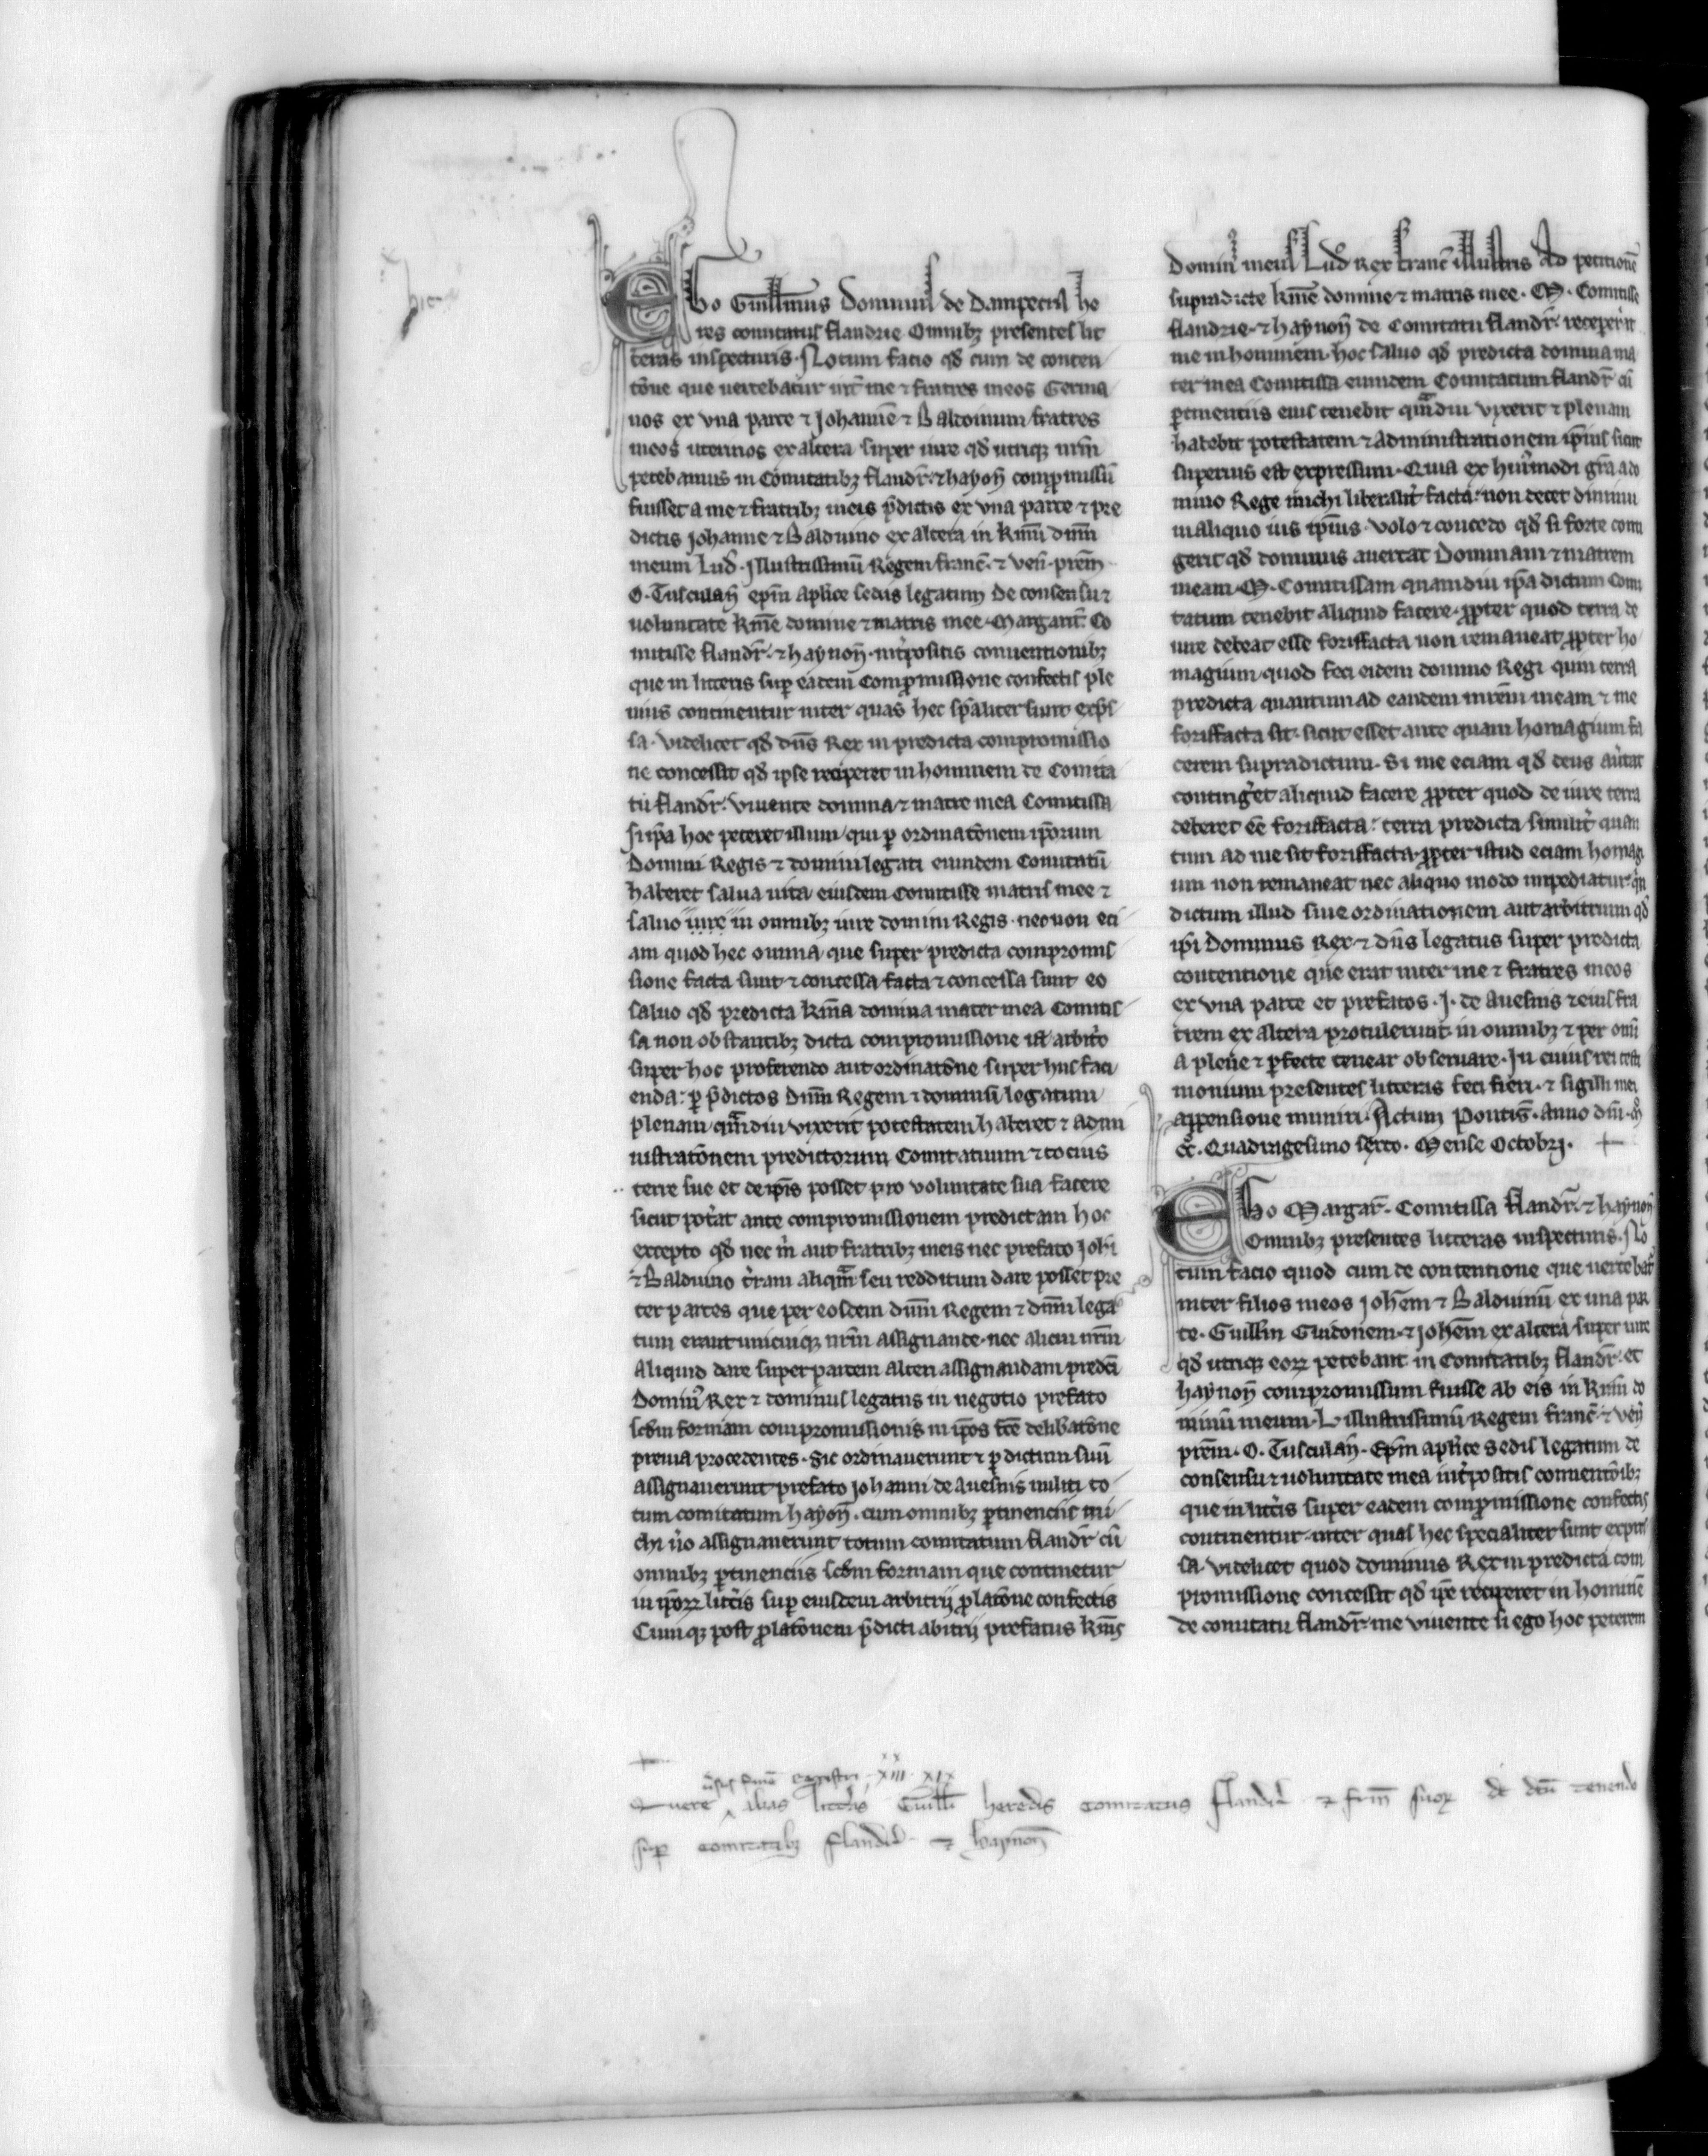 hic
Eho Guill̅mus Dominus de Dampetra he
res comitatus flandrie Omnibꝫ presentes lit
teras inspecturis. Notum facio qd̅ cum de conten
tõne que uertebatur int̅ me ⁊ fratres meos Germa
nos ex vna parte ⁊ Johanne̅ ⁊ Baldoinum fratres
meos uterinos ex altera super iure qd̅ utriqꝫ nr̅m
petebamus in Comitatibꝫ flandr̅. ⁊ hayoñ comp̱missu̅
fuisset a me ⁊ fratribꝫ meis p̅dictis ex vna parte ⁊ pre
dictis Johanne ⁊ Balduino ex altera in km̅m dn̅m
meum Lud̅. Jllustrissimu̅ Regem franc̅. ⁊ ven̅. prem̅
O. Tusculan̅ ep̅m aplice sedis legatum de consensu ⁊
uoluntate km̅e domine ⁊ matris mee. Margarit̅. Co
mitisse flandr̅. ⁊ haynon̅. int̅positis conuentionibꝫ
que in litteris sup̱ eadem Comp̱missione confectis ple
nius continentur inter quas hec sp̅aliter sunt exp̅s
sa. videlicet qd̅ dn̅s Rex in predicta compromissio
ne concessit qd̅ ipse reciperet in hominem de Comita
tu flandr̅. viuente domina ⁊ matre mea Comitissa
sup̅a hoc peteret illum qui p̱ ordinatõnem ip̅orum
Domini Regis ⁊ domini legati eiundem Comitatu̅
haberet salua uita eiusdem Comitisse matris mee ⁊
saluo iure in omnibꝫ iure domini Regis. necnon eci
am quod hec omnia que super predicta compromis
sione facta sunt ⁊ concessa facta ⁊ concessa sunt eo
saluo qd̅ predicta km̅a domina mater mea Comitis
sa non obstantibꝫ dicta compromissione ut̅ arbit̅o
super hoc proferendo aut ordinatõne super hiis faci
enda: p̱ p̅dictos dn̅m Regem ⁊ dominu̅ legatum
plenam qm̅diu vixerit potestatem haberet ⁊ admi
nistratõnem predictorum Comitatuum ⁊ tocius
terre sue et de ip̅is posset pro voluntate sua facere
sicut pot̅at ante compromissionem predictam hoc
excepto qd̅ nec m̅ aut fratribꝫ meis nec prefato Joh̅i
⁊ Balduino t̅ram aliqm̅ seu redditum dare posset pre
ter partes que per eosdem dn̅m Regem ⁊ dn̅m lega
tum erant unicuiqꝫ nr̅m assignande. nec alicui nr̅m
aliquid dare super partem alteri assignandam predc̅i
Domin̅ Rex ⁊ dominus legatus in negotio prefato
scdm̅ formam compromissionis in ip̅os fc̅e delib̅atõne
preuia procedentes. Sic ordinauerunt ⁊ p̱ dictum suu̅
assignauerunt prefato Johanni de auesnis militi to
tum comitatum hayon̅. cum omnibꝫ p̱tinenciis mi
chi u̅o assignauerunt totum comitatum flandr̅ cu̅
omnibꝫ p̱tinenciis scdm̅ formam que continetur
in ip̅oꝝ litt̅is sup̱ eiusdem arbitrij p̱latõne confectis
Cumqꝫ post p̱latõnem p̅dicti abitrij prefatus km̅s
Domin̅ meus Lud̅ Rex franc̅ illustris Ad petitione̅
supradicte km̅e domine ⁊ matris mee. M. Comitisse
flandrie. ⁊ haynon̅ de Comitatu flandr̅. receperit
me in hominem. hoc saluo qd̅ predicta domina ma
ter mea Comitissa eumdem Comitatum flandr̅ cu̅
p̱tinentiis eius tenebit qm̅diu vixerit ⁊ plenam
habebit potestatem ⁊ administrationem ip̅ius sicut
superius est expressum. Quia ex hui̅modi gr̅a a do
mino Rege michi liberalit̅ facta: non decet diminu
in aliquo ius ip̅ius. volo ⁊ concedo qd̅ si forte conti
gerit qd̅ dominus auertat Dominam ⁊ matrem
meam. M. Comitissam quamdiu ip̅a dictum Comi
tatum tenebit aliquid facere. p̱pter quod terra de
iure debeat esse foriffacta non remaneat p̱pter ho
magium quod feci eidem domino Regi quin terra
predicta quantum ad eandem mr̅em meam ⁊ me
foriffacta sit. sicut esset ante quam homagium fa
cerem supradictum. Si me eciam qd̅ deus au̅tat
conting̅et aliquid facere p̱pter quod de iure terra
deberet ee̅ foriffacta: terra predicta similit̅ quan
tum ad me sit foriffacta. p̱pter istud eciam homagi
um non remaneat nec aliquo modo impediatur. qn̅
dictum illud siue ordinationem aut arbitrium qd̅
ip̅i Dominus Rex ⁊ dn̅s legatus super predicta
contentione que erat inter me ⁊ fratres meos
ex vna parte et prefatos. J. de Auesnis ⁊ eius fra
trem ex altera protulerunt. in omnibꝫ ⁊ per omi̅
a plene ⁊ p̱fecte tenear obseruare. Jn cuius rei testi
monium presentes litteras feci fieri. ⁊ sigilli mei
appensione muniri. Actum Pontis̅. Anno dn̅i. mº
ccº. Quadragesimo sexto. Mense Octobrj. +
Eho Margar̅. Comitissa flandr̅. ⁊ haynon̅
Omnibꝫ presentes litteras inspecturis. No
tum facio quod cum de contentione que uertebat̅
inter filios meos Johe̅m ⁊ Balduinu̅ ex una par
te. Guill̅m Guidonem. ⁊ Johe̅m ex altera super iure
qd̅ utriqꝫ eoꝝ petebant in Comitatibꝫ flandr̅. et
haynon̅ compromissum fuisse ab eis in km̅m do
minu̅ meum. L. illustrissimu̅ Regem franc̅. ⁊ ven̅
prem̅. O. Tusculan̅. Ep̅m aplice Sedis legatum de
consensu ⁊ uoluntate mea int̅positis conuentõibꝫ
que in litt̅is super eadem comp̱missione confectis
continentur. inter quas hec specialiter sunt expres
sa. videlicet quod dominus Rex in predicta com
promissione concessit qd̅ ip̅e reciperet in homine̅
de comitatu flandr̅. me viuente si ego hoc peterem
+
u̅sus fine̅ registri. xiii. xix
Quere alias litt̅as Guill̅i heredis comitatus flandr̅. ⁊ fr̅m suoꝝ de dc̅o tenendo
sup̱ comitatibꝫ flandr̅. ⁊ haynon̅